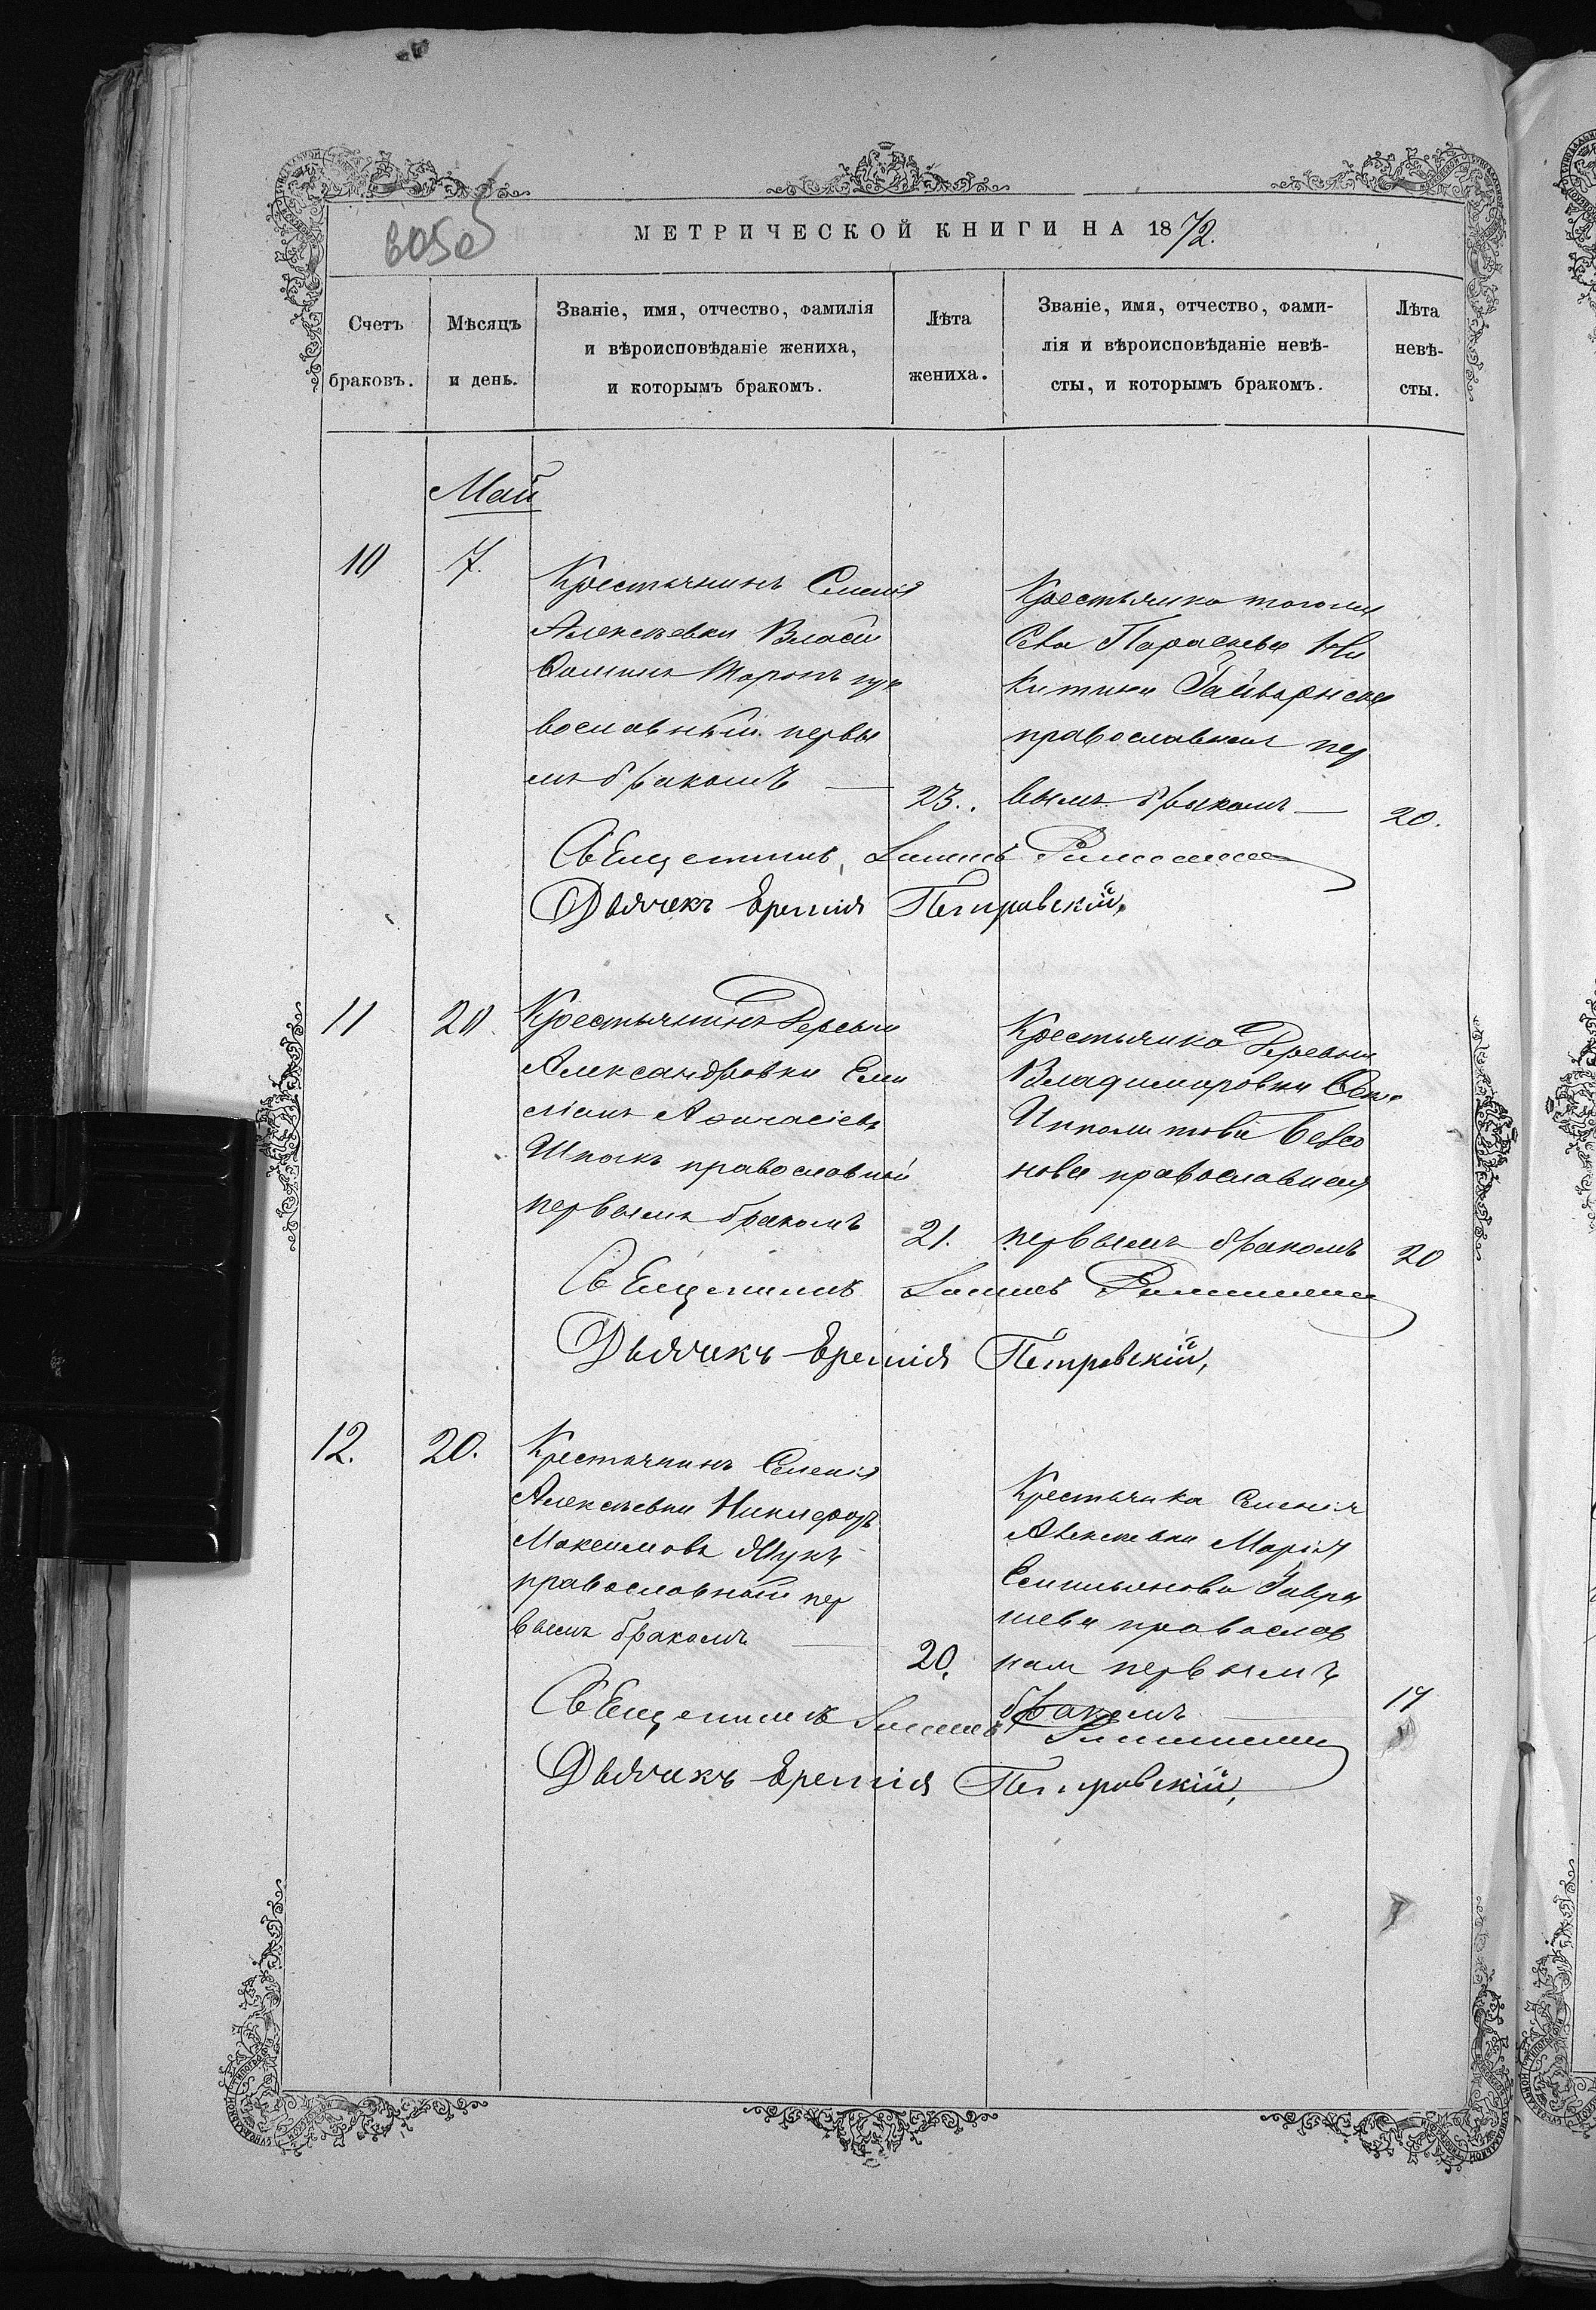 МЕТРИЧЕСКОЙ КНИГИ НА 1872.
Счетъ браковъ.
Мѣсяцъ и день.
Званіе, имя, отчество, фамилія
и вѣроисповѣданіе жениха,
и которымъ бракомъ.
Лѣта жениха.
Званіе, имя, отчество, фами-
лія и вѣроисповѣданіе невѣ-
сты, и которымъ бракомъ.
Лѣта невѣ-
сты.
Май
10
7.
Крестьянинъ Селенія
Алексѣевки Власій
пра
вославный первы
мъ бракомъ
23.
Крестьянка тогоже
Села Параскевья Ни
китина
православная пер
вымъ бракомъ
20.
Священникъ
Дьячекъ Еремія Петровскій,
11
20.
Крестьянинъ Деревни
Александровки Еми
ліанъ Аѳанасіевъ
Шпакъ православный
первымъ бракомъ
21.
Крестьянка Деревни
Владимировки
Ипполитова
нова православная
первымъ бракомъ
20
Священникъ
Дьячекъ Еремія Петровскій,
12.
20.
Крестьянинъ Селенія
Алексѣевки Никифоръ
Максимовъ
православный пер
вымъ бракомъ
20.
Крестьянка Селенія
Алексѣевки Марія
Емильянова Гавры
шева православ
ная первымъ
бракомъ
Священникъ
Дьячекъ Еремія Петровскій,